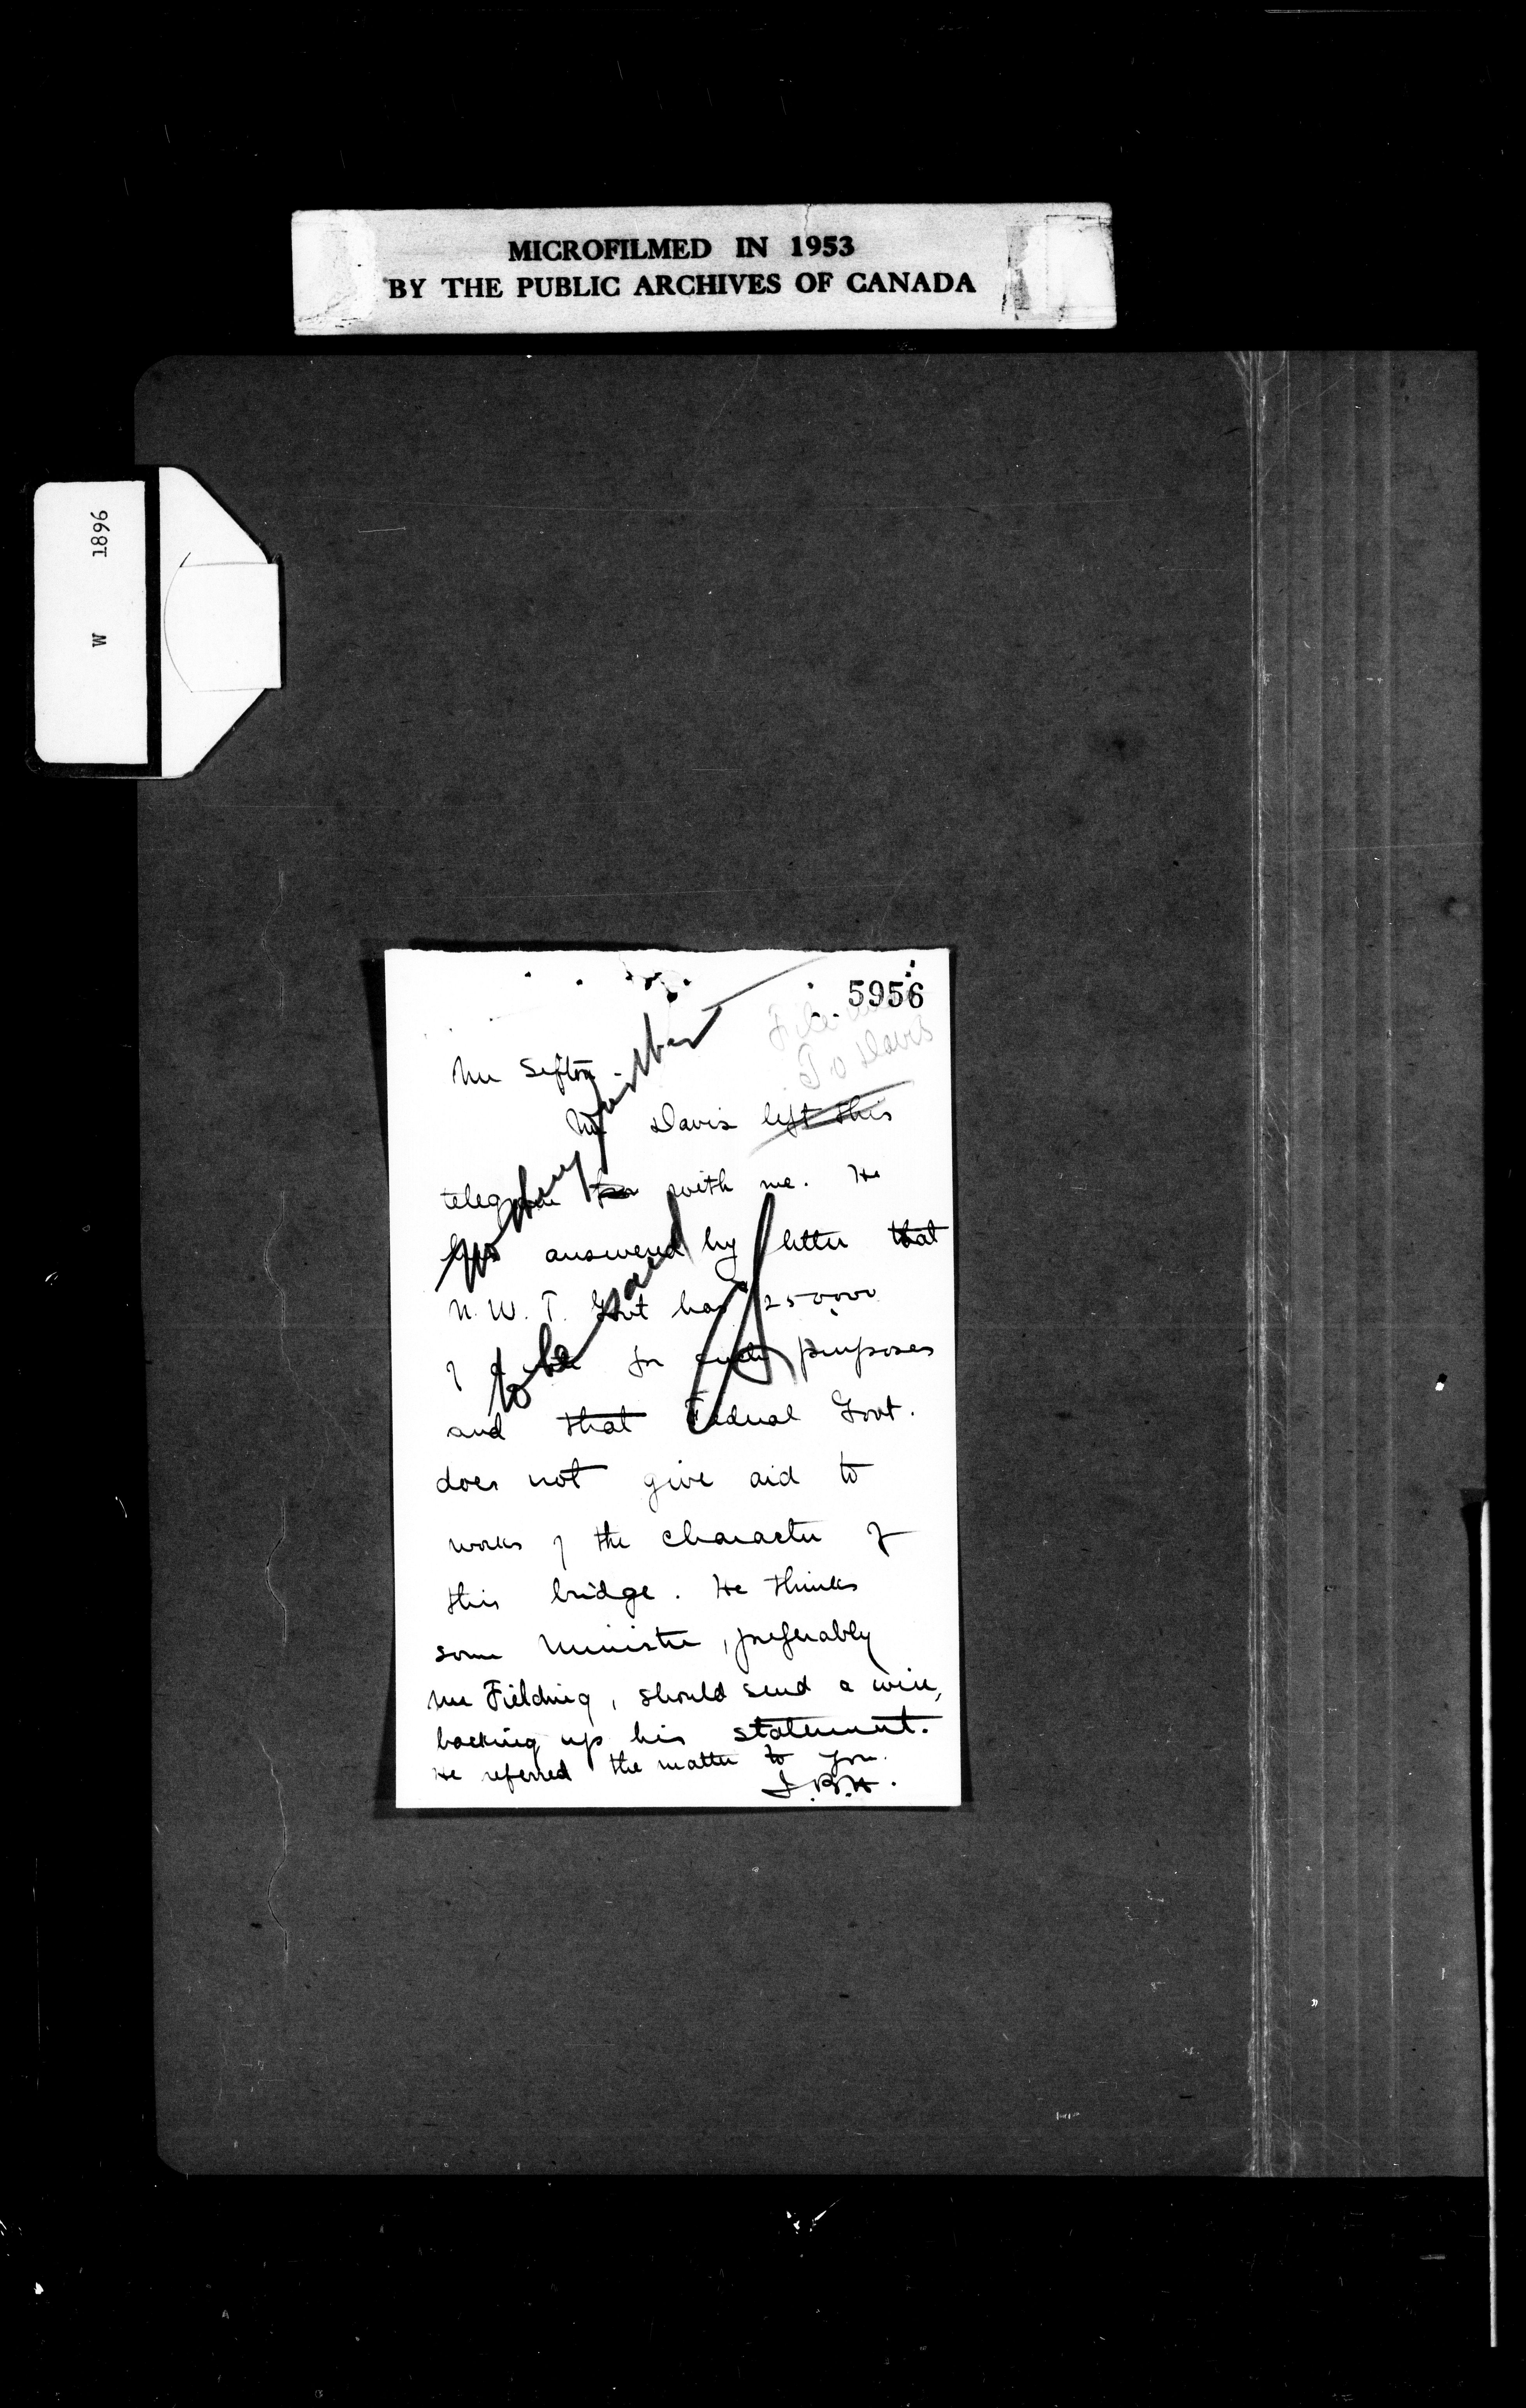 MICROFILMED IN 1953
BY THE PUBLIC ARCHIVES OF CANADA
W 1896
5956
File
T O Davis
Mr Sifton -
Mr Davis left this
telegram with me. He
has answered by letter that
N. W. T. Govt has 250000
for such purposes
and that Federal Govt.
does not give aid to
works of the character of
this bridge. He thinks
some Minister, preferably
Mr Fielding, should send a wire,
backing up his statement.
He referred the matter to you.
J.B.H.
Nothing further
to be said